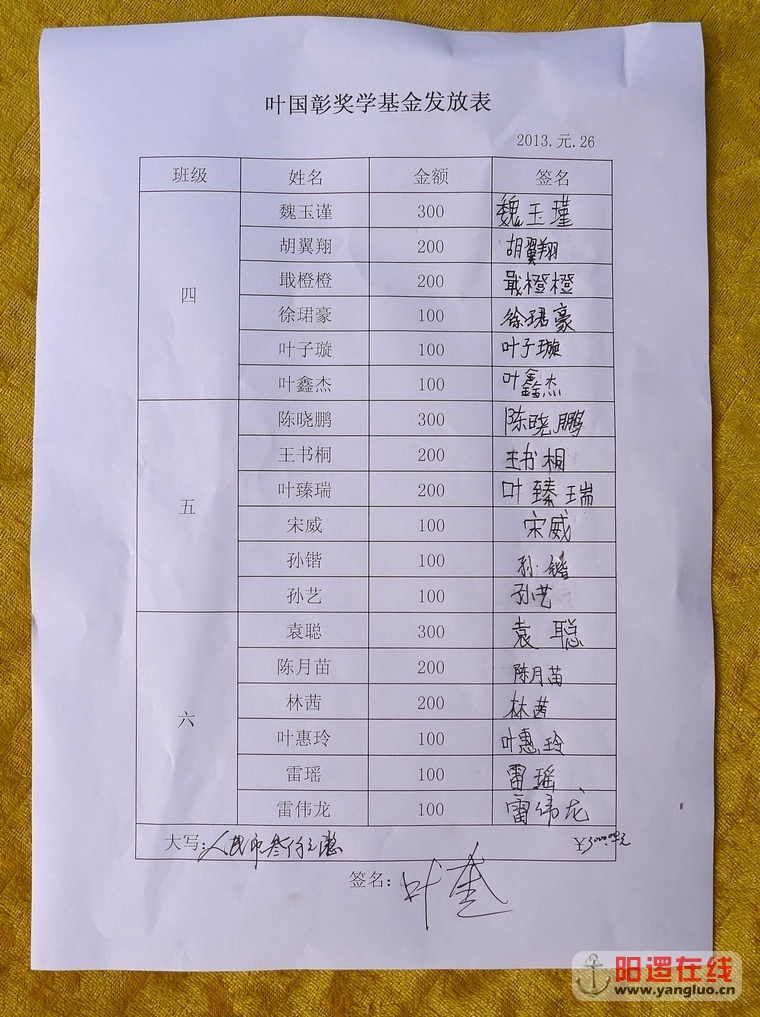 叶国彰奖学基金发放表
2013.元.26
班级 姓名 金额 签名
四
魏玉谨 300 魏玉瑾
胡翼翔 200 胡翼翔
戢橙橙 200 戢橙橙
徐珺豪 100 徐珺豪
叶子璇 100 叶子璇
叶鑫杰 100 叶鑫杰
五
陈晓鹏 300 陈晓鹏
王书桐 200 王书桐
叶臻瑞 200 叶臻瑞
宋威 100 宋威
孙锴 100 孙锴
孙艺 100 孙艺
六
袁聪 300 袁聪
陈月苗 200 陈月苗
林茜 200 林茜
叶惠玲 100 叶惠玲
雷瑶 100 雷瑶
雷伟龙 100 雷伟龙
大写:人民币叁仟元整 ¥3000.00元
签名:叶奎
阳逻在线
www.yangluo.cn